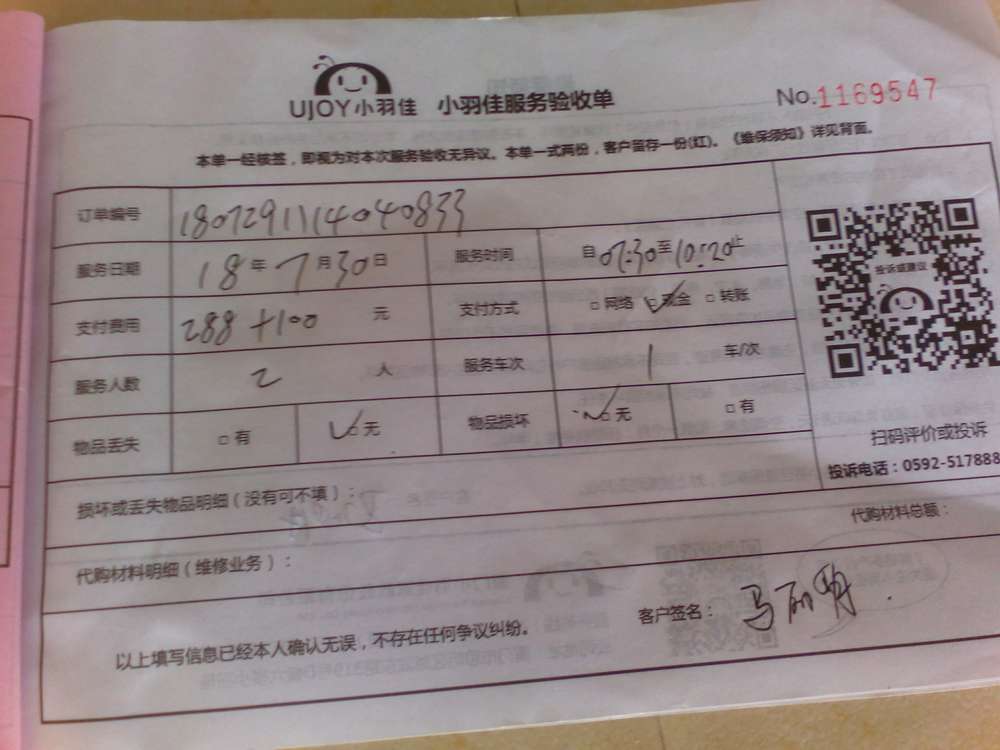 UJOY小羽佳 小羽佳服务验收单 No.1169547
本单一经核签，即视为对本次服务验收无异议。本单一式两份，客户留存一份(红)。《维保须知》详见背面。
订单编号 1807291114040833
服务日期 18年7月30日 服务时间 自07:30至10:20止
支付费用 288+100 元 支付方式 □网络 ☑现金 □转账
服务人数 2 人 服务车次 1 车/次
物品丢失 □有 ☑无 物品损坏 ☑无 □有
投诉或建议
扫码评价或投诉
投诉电话：0592-517888
损坏或丢失物品明细（没有可不填）：
代购材料明细（维修业务）： 代购材料总额：
以上填写信息已经本人确认无误，不存在任何争议纠纷。 客户签名：马丽明